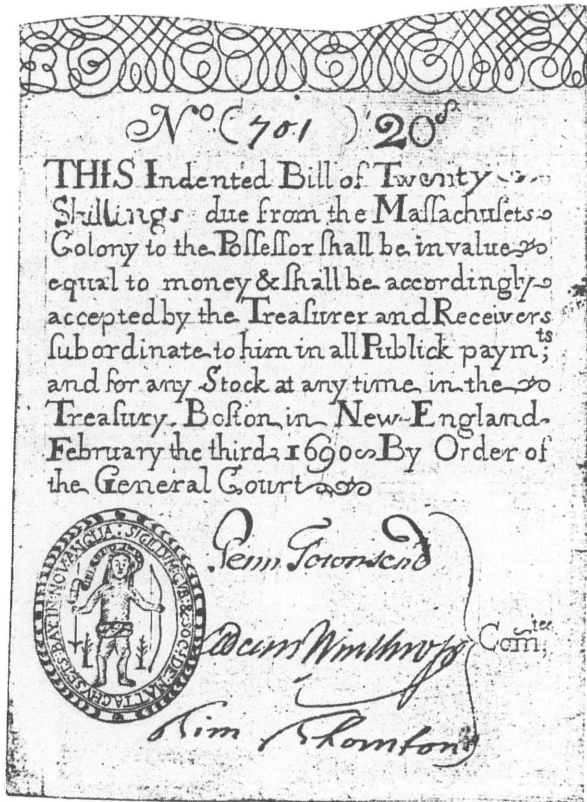 Nº (701) 20ˢ
THIS Indented Bill of Twenty
Shillings due from the Maſſachuſets
Colony to the Poſſeſſor ſhall be in value
equal to money & ſhall be accordingly
accepted by the Treaſurer and Receivers
ſubordinate to him in all Publick paymᵗˢ;
and for any Stock at any time in the
Treaſury. Boſton in New-England
February the third 1690 By Order of
the General Court
Penn Townsend
Adam Winthrop
Tim Thornton
Comᵗᵉᵉ;
SIGILLVM:GVB:&:SOC:DE:MATTACHVSETS:BAY:IN:NOV:ANGLIA